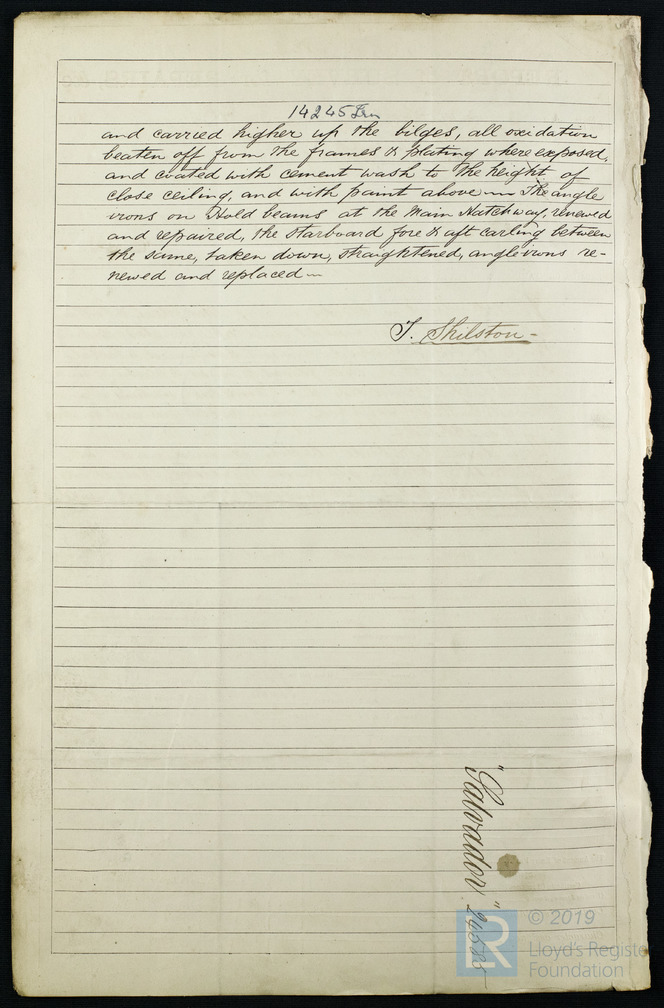 14245 Irn
and carried higher up the bilges, all oxidation
beaten off from the frames & plating where exposed,
and coated with cement wash to the height of
close ceiling, and with paint above — The angle
irons on Hold beams at the Main Hatchway, renewed
and repaired, the starboard fore & aft carling between
the same, taken down, straightened, angle irons re-
newed and replaced —
T. Shilston -
"Salvador"
© 2019
Lloyd's Registe
Foundation
LR